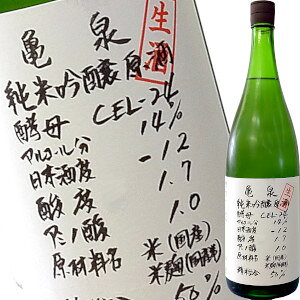 亀泉
生酒
純米吟醸原酒
酵母 CEL-24
アルコール分 14%
日本酒度 -12
酸度 1.7
アミノ酸 1.0
原材料名 米(国産)
米麹(国産米)
50%
亀泉
生酒
純米吟醸原酒
酵母 CEL-24
アルコール分 14%
日本酒度 -12
酸度 1.7
アミノ酸 1.0
原材料名 米(国産)
米麹(国産米)
精米歩合 50%